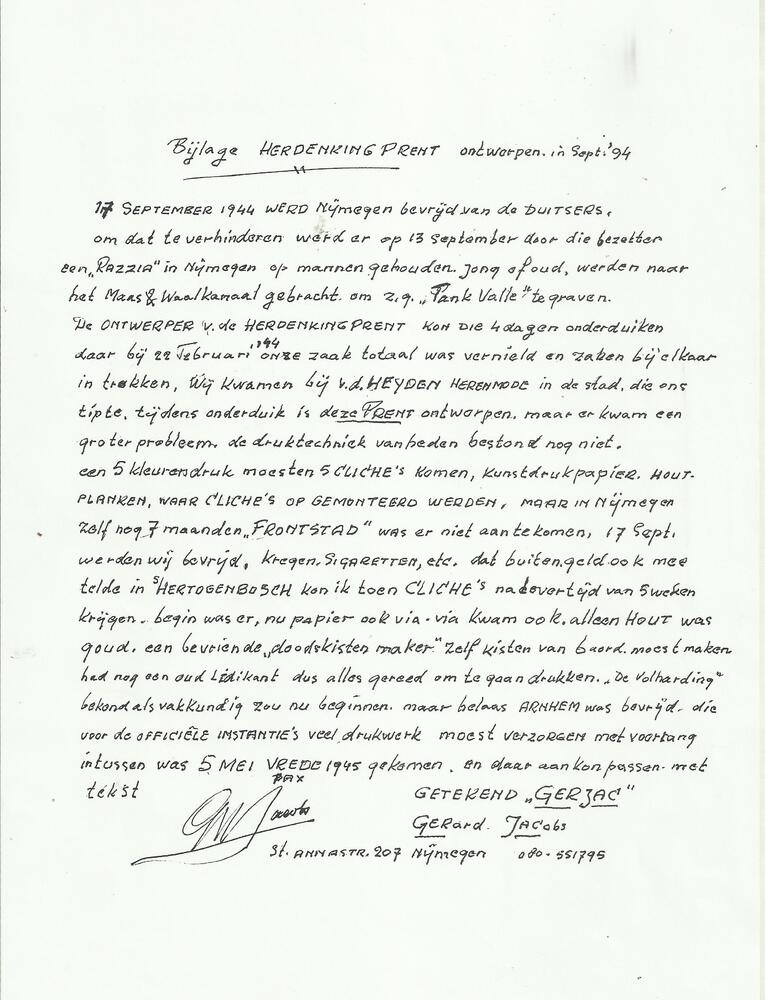 Bijlage HERDENKING PRENT ontworpen. in Sept. '94
17 SEPTEMBER 1944 WERD Nijmegen bevrijd van de DUITSERS.
om dat te verhinderen werd er op 13 September door die bezetter
een "RAZZIA" in Nijmegen op mannen gehouden. jong of oud, werden naar
het Maas & Waalkanaal gebracht. om z.g. "Tank Valle" te graven.
De ONTWERPER v. de HERDENKING PRENT KON DIE 4 dagen onderduiken
daar bij 22 Februari '44 onze zaak totaal was vernield en zaken bij elkaar
in trokken, Wij kwamen bij v.d. HEYDEN HERENMODE in de stad, die ons
tipte, tijdens onderduik is deze PRENT ontworpen. maar er kwam een
groter probleem. de druktechniek van heden bestond nog niet.
een 5 kleurendruk moesten 5 CLICHE'S komen, kunstdrukpapier. HOUT-
PLANKEN, WAAR CLICHE'S OP GEMONTEERD WERDEN, MAAR IN Nijmegen
Zelf nog 7 maanden "FRONTSTAD" was er niet aan te komen, 17 Sept.
werden wij bevrijd, kregen. SIGARETTEN, etc. dat buiten geld ook mee
telde in 'S HERTOGENBOSCH kon ik toen CLICHE'S na levertijd van 5 weken
krijgen. begin was er, nu papier ook via-via kwam ook. alleen HOUT was
goud. een bevriende "doodskisten maker" Zelf kisten van boord. moest maken
had nog een oud Ledikant dus alles gereed om te gaan drukken. "De Volharding"
bekend als vakkundig zou nu beginnen. maar helaas ARNHEM was bevrijd. die
voor de OFFICIËLE INSTANTIE'S veel drukwerk moest verzorgen met voorrang
intussen was 5 MEI VREDE 1945 gekomen. en daar aan kon passen. met
tekst PAX
GETEKEND "GERJAC"
GERard. JACobs
St. ANNASTR. 207 Nijmegen 080-551795